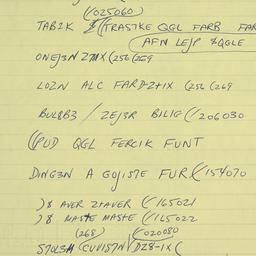 (/025060)
TABIK (TRASTKE QGL FARB FAR
(AFN LEJP
ONEJ3N (256 (269
LOZN ALC FARD-Z+IX (256 (269
BUL8B3 / ZEJ8R BILIG (/206030
(/PUD QGL FERCIK FUNT
DING3N A GOJISTE FUR (/154070
)8 AVER Z+AVER (/165021
)8 MASTE MASTE (/165022
(268) (/020080
(CUVISTN) DZ8-IX (